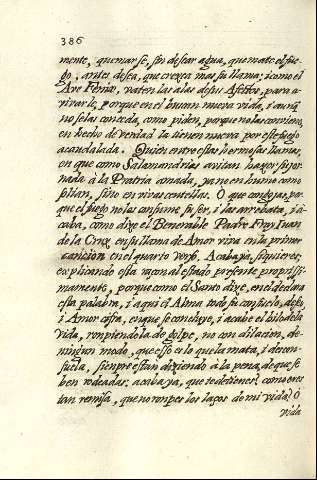 386
mente, quemarse, sin desear agua, que mate el fue-
go, antes desea, que crezca mas su llama; i como el
Ave Fenix, vaten las alas de sus Afectos, para a-
vivarle, porque en el hallan nueva vida, i aunq
no se las conceda, como piden, porque no las conviene,
en hecho de verdad la tienen nueva por este fuego
acaudalada. Quien entre estas hermosas llamas,
en que como Salamandrias avitan hazer su jor-
nada à la Patria amada, ya no en humo como
solian, sino en vivas centellas. O que congojas, por-
que el fuego no las consume su ser, i las arrebata, i a-
caba, como dixo el Benerable Padre Fray Juan
de la Cruz en su llama de Amor viva en la primer
cancion en el quarto verso. Acaba ya, si quieres;
explicando esta razon al estado presente propriissi-
mamente, porque como el Santo dixe, en el declara
esta palabra, i aqui el Alma todo su consuelo, deseo,
i Amor cifra, en que se concluye, i acabe el hilo de la
vida, rompiendola de golpe, no con dilacion, de
ningun modo, que esso es lo que la mata, i descon-
suela, siempre estan diziendo à la pena, de que se
ben rodeadas; acaba ya, que te detienes? como eres
tan remisa, que no rompes los laços de mi vida? O
vida